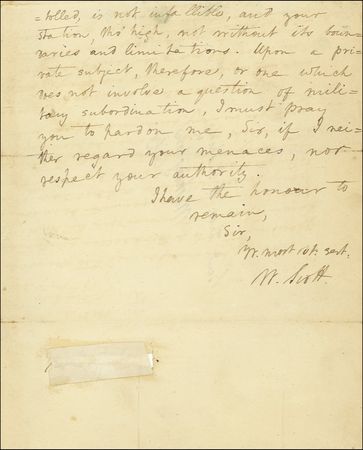 -tolled, is not infallible, and your
station, tho' high, not without its boun-
daries and limitations. Upon a pri-
vate subject, therefore, or one which
does not involve a question of mili-
tary subordination, I must pray
you to pardon me, Sir, if I nei-
ther regard your menaces, nor
respect your authority.
I have the honour to
remain,
Sir,
Yr. most obt. servt.
W. Scott.